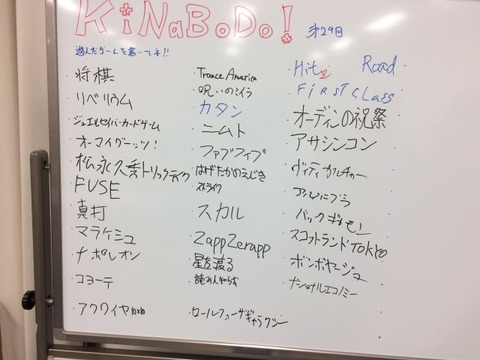 KiNaBoDo! 第29回
遊んだゲームを書いてネ!!
将棋
リベリウム
ジュエルセイバーカードゲーム
オーマイグーッツ!
松永久秀トリックテイク
FUSE
真打
マラケシュ
ナポレオン
コヨーテ
アクワイヤ
Trance America
呪いのミイラ
カタン
ニムト
ファブフィブ
はげたかのえじき
ストライク
スカル
ZappZerapp
星を渡る
読み人知らず
ロールフォーザギャラクシー
Hit z Road
FiRST CLass
オーディンの祝祭
アサシンコン
ヴィティカルチャー
スコットランドTOKYO
ボンボヤージュ
ナショナルエコノミー